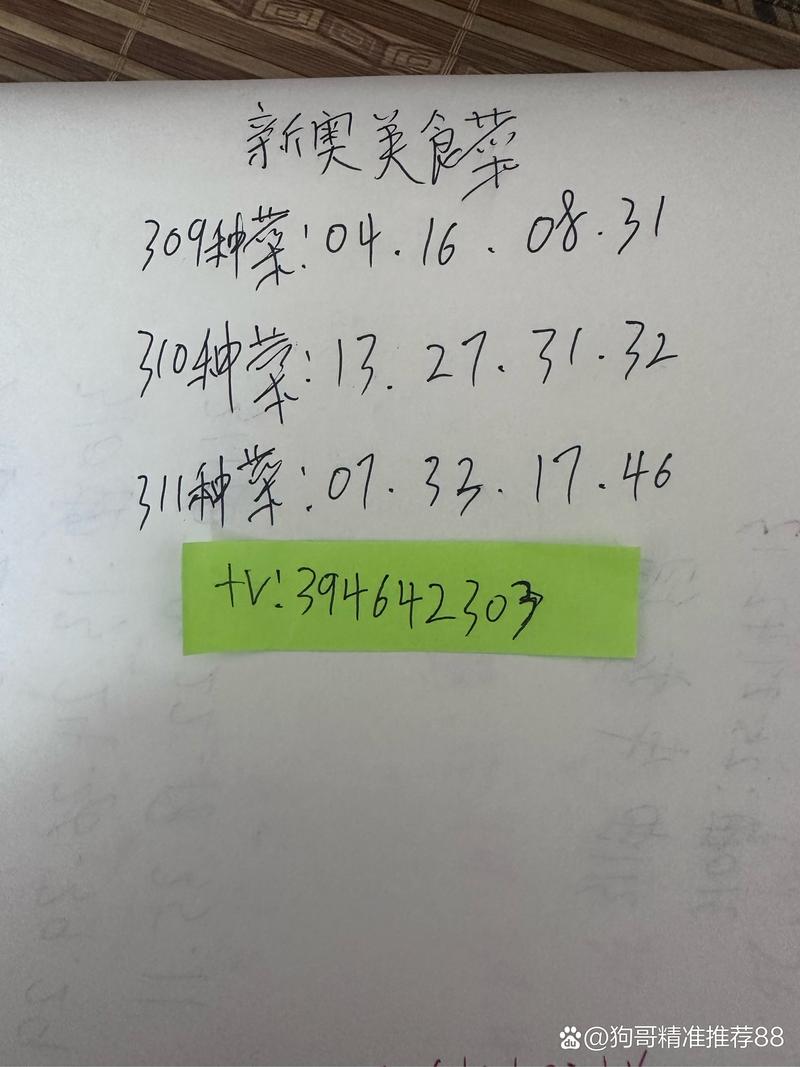 新奥美食菜
309种菜:04.16.08.31
310种菜:13.27.31.32
311种菜:07.33.17.46
+V:394642303
@狗哥精准推荐88